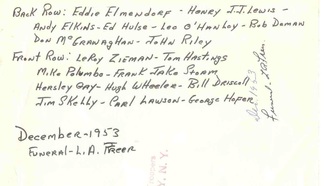 Back Row: Eddie Elmendorf - Henry J.J. Lewis -
Andy Elkins - Ed Hulse - Leo O'Hanloy - Bob Doman
Don McGranaghan - John Riley
Front Row: LeRoy Zieman - Tom Hastings
Mike Palumbo - Frank Jake Storm
Hensley Gray - Hugh Wheeler - Bill Driscoll
Jim Skelly - Carl Lawson - George Hofer
December - 1953
Funeral - L.A. Freer
Dec 1953
N. Y.